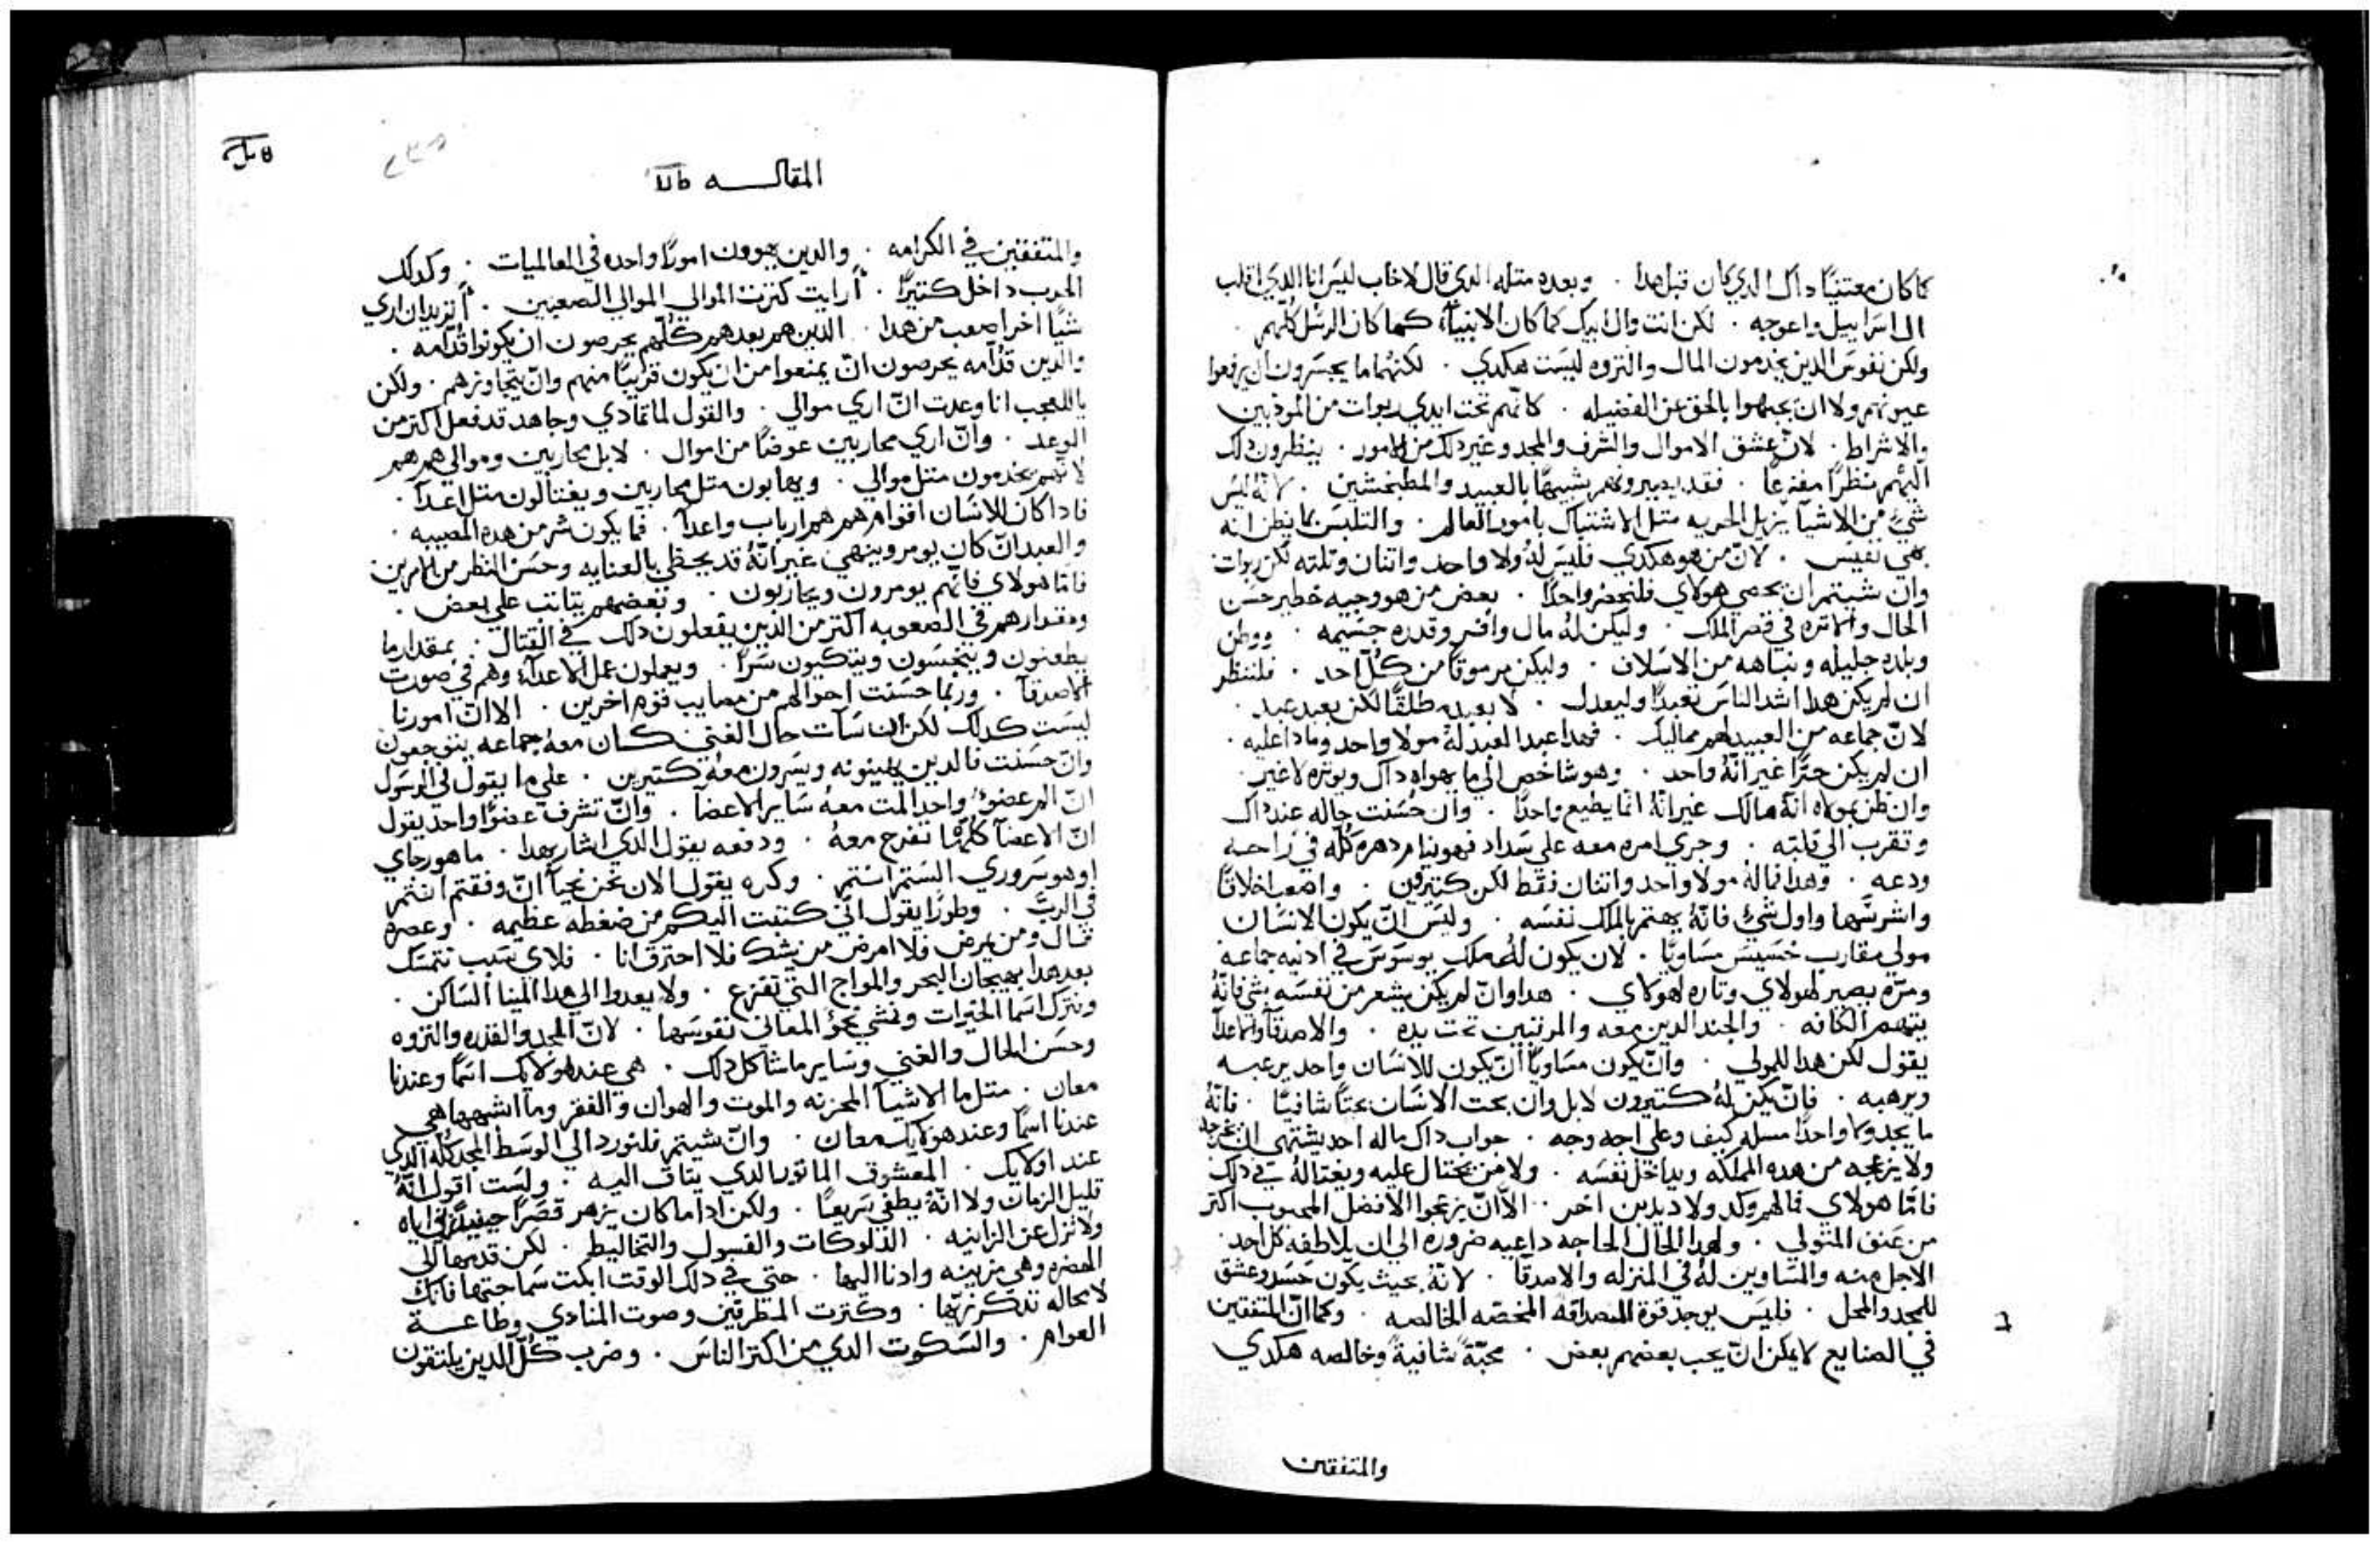 كما كان معتنيًا داك الدي كان قبل هدا . وبعده متله الدي قال لاخاب ليس انا الدي اقلب
ال اسراييل واعوجه . لكن انت وال ابيك كما كان الانبيآء كما كان الرسل كلهم .
ولكن نفوس الدين يخدمون المال والتروه ليست هكدي . لكنهما ما يجسرون ان يرفعوا
عيونهم ولا ان يجبهوا بالحق عن الفضيله . كانهم تحت ايدي ربوات من الموذيين
والاشراط . لان عشق الاموال والشرف والمجد وغير دلك من الامور . ينظرون دلك
اليهم منظرًا مفزعًا . فقد يصيروهم شبيهًا بالعبيد والمطبخشين . لانه ليس
شيء من الاشيآ يزيل الحريه متل الاشتباك بامور العالم . والتلبس بما يظن انه
بهي نفيس . لان من هو هكدي فليس له ولا واحد واتنان وتلته لكن ربوات
وان شيتم ان نحصي هولاي فلنحضر واحدًا . بعض من هو وجيه خطير حسن
الحال والاتره في قصر الملك . وليكن له مال وافر وقدره جسيمه . ووطن
وبلده جليله ونباهه من الاسلاف . وليكن مرموقًا من كل احد . فلننظر
ان لم يكن هدا اشد الناس تعبدًا وليعدل . لا بعبد مطلقًا لكن بعبد عبد .
لان جماعه من العبيد لهم مماليك . فهدا عبد العبد له مولا واحد وما دا عليه .
ان لم يكن حرًا غير انه واحد . وهو شاخص الي ما يهواه داك ويوتره لا غير .
وان ظن بمولاه انه مالك غير انه انما يطيع واحدًا . وان حسنت حاله عند داك
وتقرب الي قلبه . وجري امره معه علي سداد فهو ينام دهره كله في راحه
ودعه . وهدا فما له مولا واحد واتنان فقط لكن كتيرون . واصعب اخلاقًا
واشرسها واول شيء فانه يهتم بالملك نفسه . وليس ان يكون الانسان
مولي مقارب خسيس مساويًا . لان يكون له ملك يوسوس في ادنيه جماعه
ومره يصير لهولاي وتاره لهولاي . هدا وان لم يكن يشعر من نفسه بشي فانه
يتهم الكافه . والجند الدين معه والمرتبين تحت يده . والاصدقآ والاعدآ
يقول لكن هدا للمولي . وان يكون مساويًا ان يكون للانسان واحد يرعبه
ويرهبه . فان يكن له كتيرون لابل وان بحت الانسان بحتًا شافيًا . فانه
ما يجد ولا واحدًا مسله كيف وعلي اجه وجه . جواب داك ما له احد يشتهي ان يخرجه
ولا يزعجه من هده المملكه ويداخل نفسه . ولا من يحتال عليه ويغتاله في دلك
فاما هولاي فما لهم وكد ولا ديدين اخر . الا ان يزعجوا الافضل المحبوب اكتر
من عنق المتولي . ولهدا الحال الحاجه داعيه ضروره الي ان يلاطفه كل احد .
الاجل منه والمساوين له في المنزله والاصدقآ . لانه بحيث يكون حسد وعشق
للمجد والمحل . فليس يوجد قوة للصداقه المخصه الخالصه . وكما ان المتفقين
في الصنايع لا يمكن ان يحب بعضهم بعض . محبة شافية وخالصه هكدي
والمتفقين
المقالـــه
والمتفقين في الكرامه . والدين يهوون امورًا واحده في العالميات . وكدلك
الحرب داخل كتيرًا . ارايت كترت الموالي الموالي الصعبين . اتريد ان اري
شيًا اخر اصعب من هدا . الدين هم بعدهم كلهم يحرصون ان يكونوا قدامه .
والدين قدامه يحرصون ان يمنعوا من ان يكون قريبًا منهم وان يتجاوزهم . ولكن
يا للعجب انا وعدت ان اري موالي . والقول لما تمادي وجاهد قد فعل اكتر من
الوعد . وان اري محاربين عوضًا من اموال . لابل محاربين وموالي هم هم
لانهم يخدمون متل موالي . ويهابون متل محاربين ويغتالون متل اعدآ .
فادا كان للانسان اقوام هم هم ارباب واعدآ . فما يكون شر من هده المصيبه .
والعبد ان كان يومر وينهي غير انه قد يحظي بالعنايه وحسن النظر من الامرين
فاما هولاي فانهم يومرون ويحاربون . وبعضهم يتاتب علي بعض .
ومقدارهم في الصعوبه اكتر من الدين يفعلون دلك في القتال . بمقدار ما
يطعنون ويتجسون ويتكيون سرًا . ويعملون عمل الاعدآء وهم في صورت
الاصدقآ . وربما حسنت احوالهم من مصايب قوم اخرين . الا ان امورنا
ليست كدلك لكن ان سآت حال الغني كان معه جماعه يتوجعون
وان حسنت فالدين يهينونه ويسرون معه كتيرين . علي ما يقول لي الرسول
ان الم عضو واحد المت معه ساير الاعضآ . وان تشرف عضوًا واحد يقول
ان الاعضآ كلها تفرح معه . ودفعه يقول الدي اشار بهدا . ما هو رجاي
او هو سروري الستم انتم . وكره يقول الان نحن نحيآ ان وقفتم انتم
في الرب . وطورًا يقول اني كتبت اليكم من ضغطه عظيمه . وعصره
قال ومن يمرض فلا امرض من يشك فلا احترق انا . فلاي سبب نتمسك
بعد هدا بهيجان البحر والمواج التي تفزع . ولا يعدوا الي هدا المينا الساكن .
ونترك اسما الخيرات ونمشي نحو المعاني نفوسها . لان المجد والقدره والتروه
وحسن الحال والغني وساير ما شاكل دلك . هي عند هولايك اسمًا وعندنا
معان . متل ما الاشيآ المحزنه والموت والهوان والفقر وما اشبهها هي
عندنا اسمًا وعند هولايك معان . وان شيتم فلنورد الي الوسط المجد كله الدي
عند اولايك . المعشوق الماتور الدي يتاق اليه . ولست اقول انه
قليل الزمان ولا انه يطفي سريعًا . ولكن ادا ما كان يزهر قصرًا حينيد اياه
ولا تزل عن الزانيه . الدلوكات والغسول والتخاليط . لكن قدمها الي
الحضره وهي مزينه وادنا اليها . حتي في دلك الوقت ابكت سماجتها فانك
لا محاله تدكر زيها . وكترت المطرقين وصوت المنادي وطاعـــة
العوام . والسكوت الدي من اكتر الناس . وضرب كل الدين يلتقون